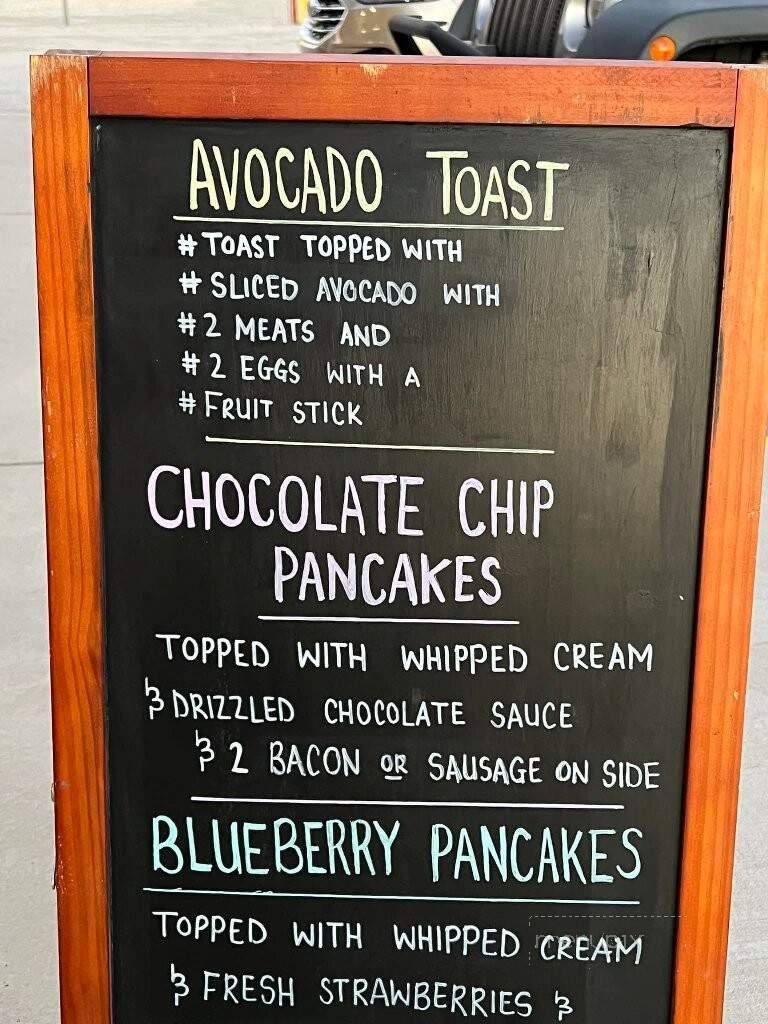 AVOCADO TOAST
# TOAST TOPPED WITH
# SLICED AVOCADO WITH
# 2 MEATS AND
# 2 EGGS WITH A
# FRUIT STICK
CHOCOLATE CHIP
PANCAKES
TOPPED WITH WHIPPED CREAM
& DRIZZLED CHOCOLATE SAUCE
& 2 BACON OR SAUSAGE ON SIDE
BLUEBERRY PANCAKES
TOPPED WITH WHIPPED CREAM
& FRESH STRAWBERRIES &